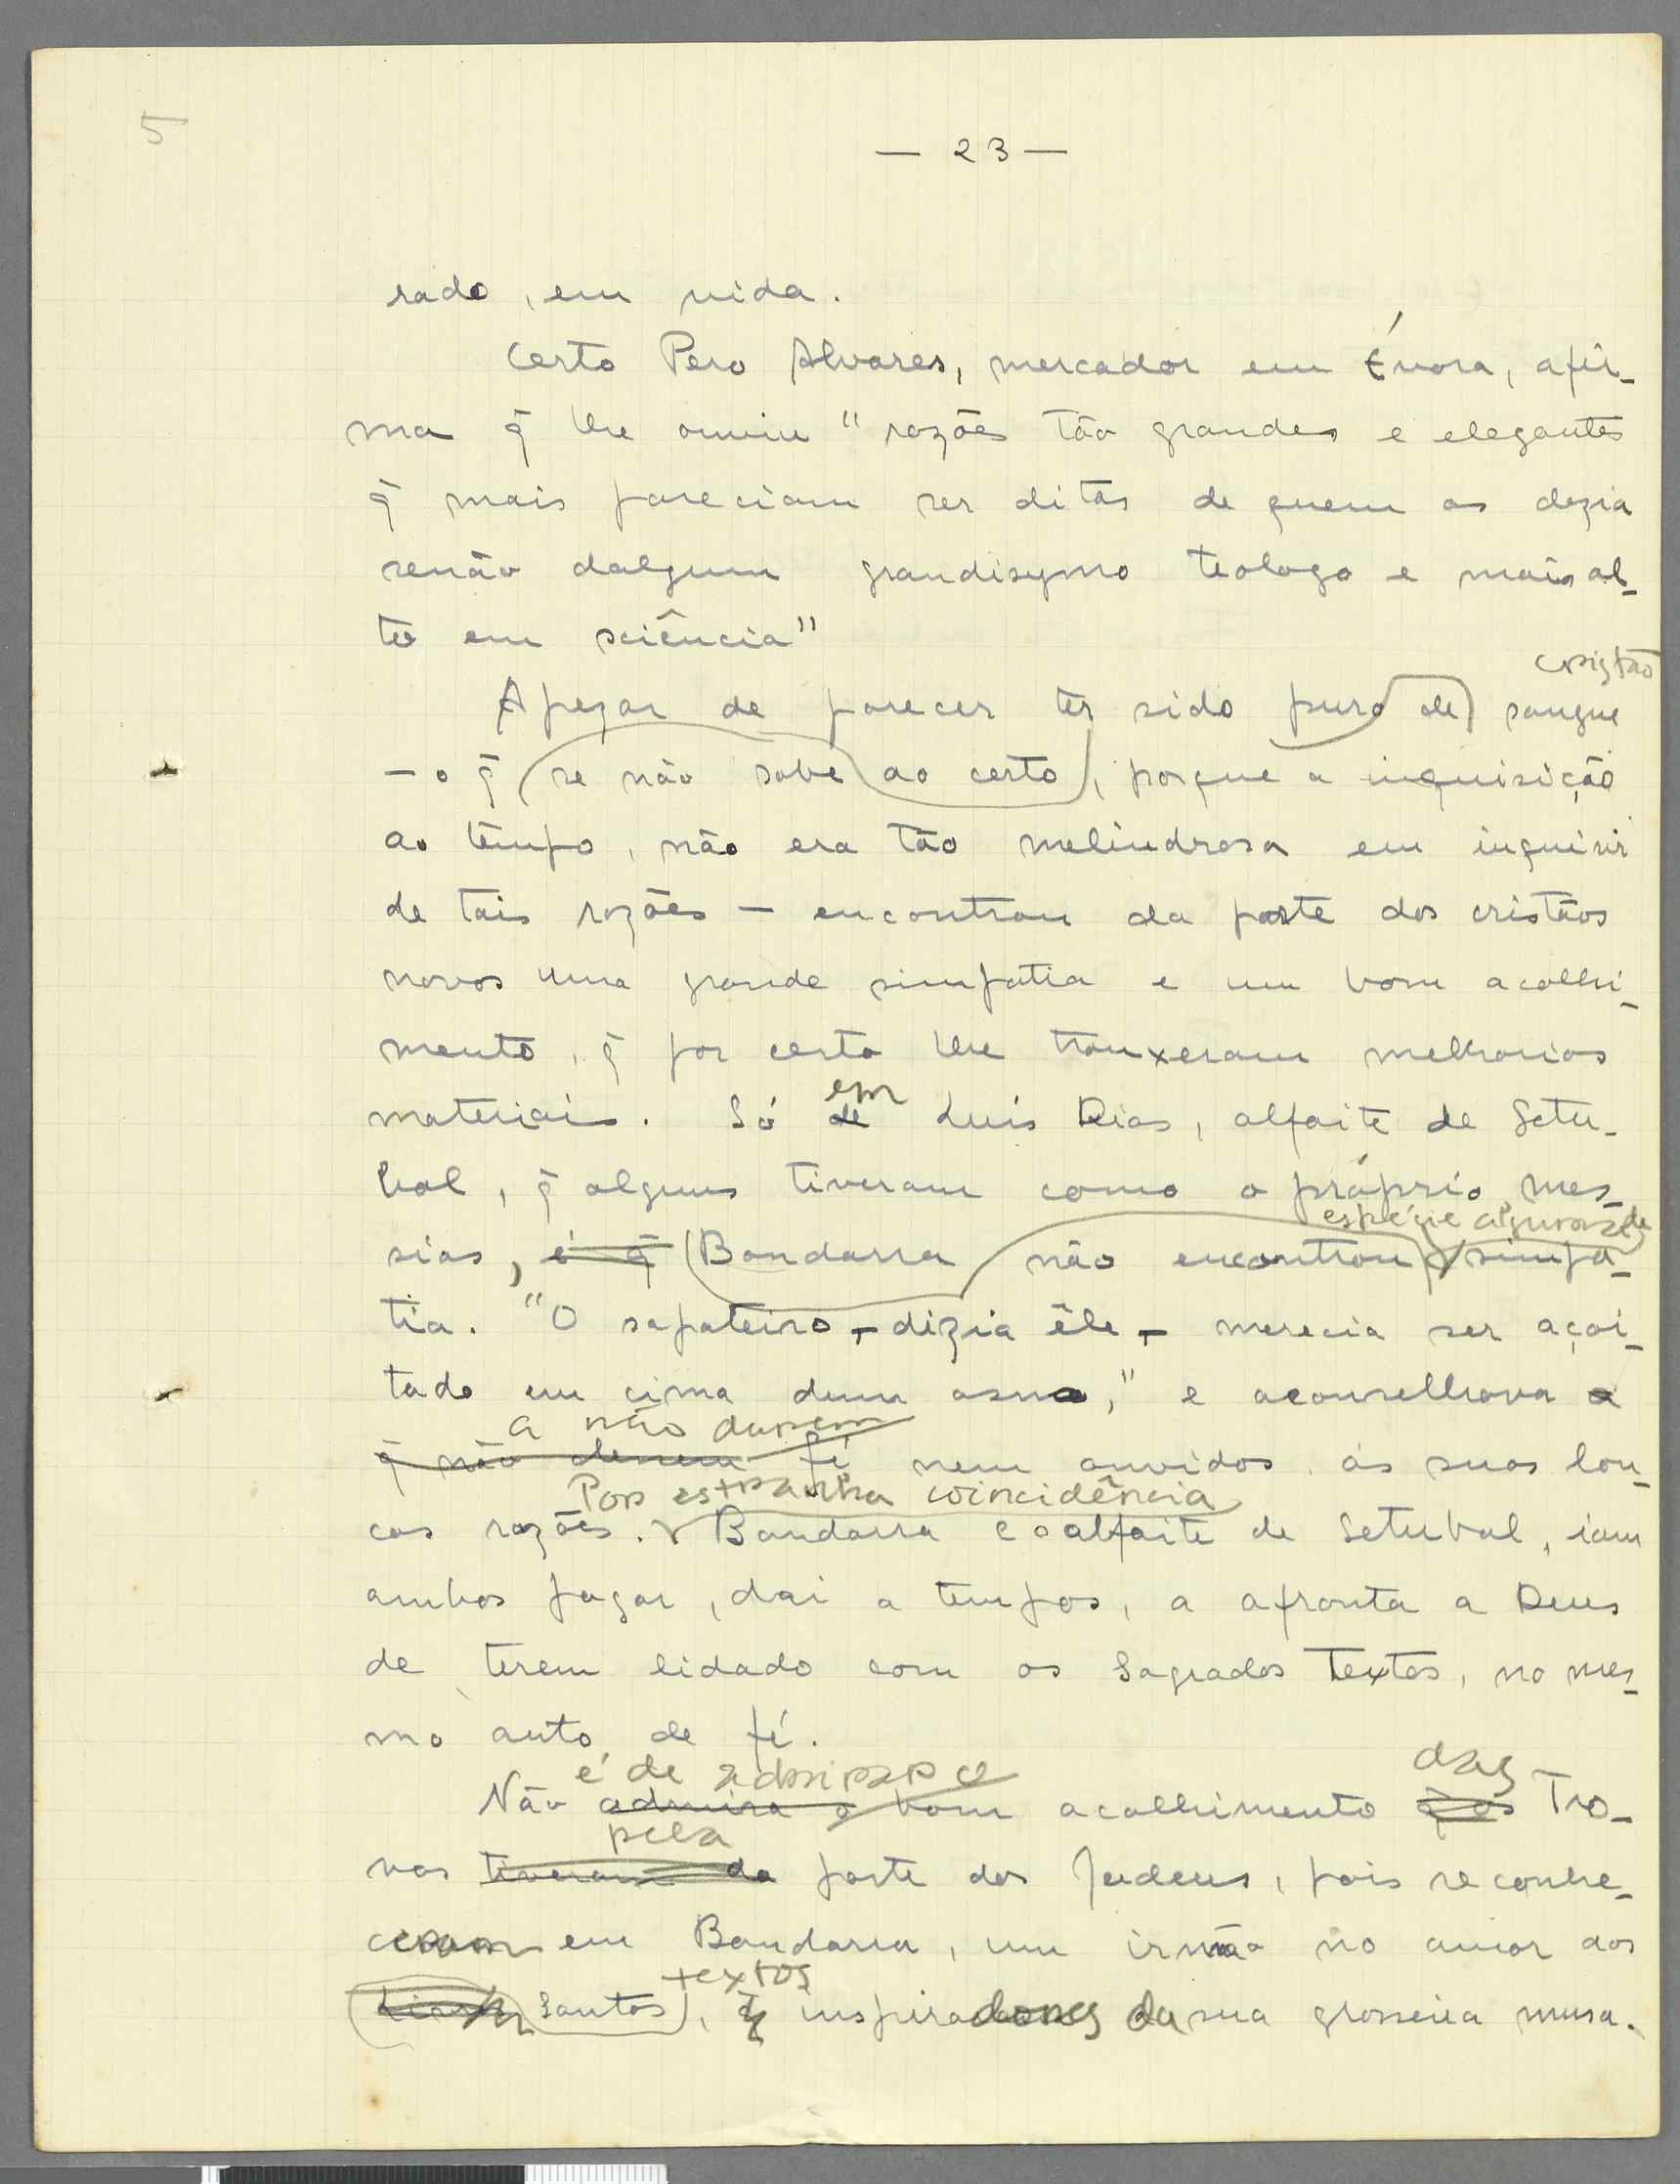 5
— 23 —
rado, em vida.
Certo Pero Alvares, mercador em Évora, afir-
ma q̃ lhe ouviu "rozões tão grandes e elegantes
q̃ mais pareciam ser ditas de quem as dezia
senão dalgum grandisymo teologo e mais al-
to em sciência"
cristão
Apezar de parecer ter sido puro de sangue
— o q̃ se não sabe ao certo, porque a inquisição
ao tempo, não era tão melindrosa em inquirir
de tais rozões — encontrou da parte dos cristãos
novos uma grande simpatia e um bom acolhi-
mento, q̃ por certo lhe trouxeram melhorias
em
materiais. Só de Luís Dias, alfaite de Setu-
bal, q̃ alguns tiveram como o próprio mes-
espécie alguma de
sias, é q̃ Bandarra não encontrou simpa-
tia. "O sapateiro — dizia êle — merecia ser açoi-
tado em cima dum asno," e aconselhava a
a não darem
q̃ não dessem fé nem ouvidos ás suas lou-
Por estranha coincidência
cas rozões. Bandarra e o alfaite de Setubal, iam
ambos pagar, dai a tempos, a afronta a Deus
de terem lidado com os Sagrados Textos, no mes-
mo auto de fé.
é de admirar o das
Não admira o bom acolhimento q̃ as Tro-
pela
vas tiveram da parte dos Judeus, pois reconhe-
ceram em Bandarra, um irmão no amor dos
textos
Santos, inspiradores da sua grosseira musa.